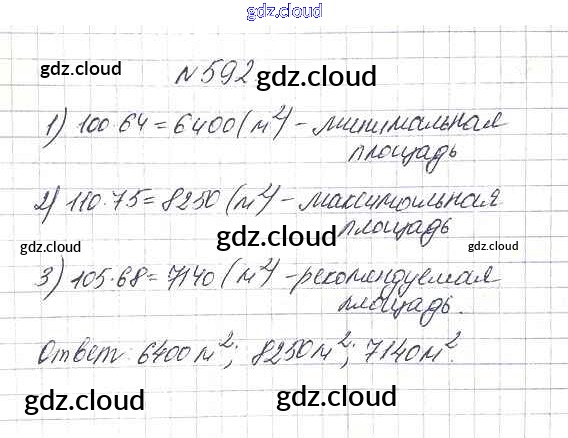 gdz.cloud
gdz.cloud
№592
gdz.cloud
1) 100·64=6400(м²) - минимальная
площадь
2) 110·75=8250(м²) - максимальная
площадь
gdz.cloud
gdz.cloud
gdz.cloud
3) 105·68=7140(м²) - рекомендуемая
площадь.
Ответ: 6400м²; 8250м²; 7140м².
gdz.cloud
gdz.cloud